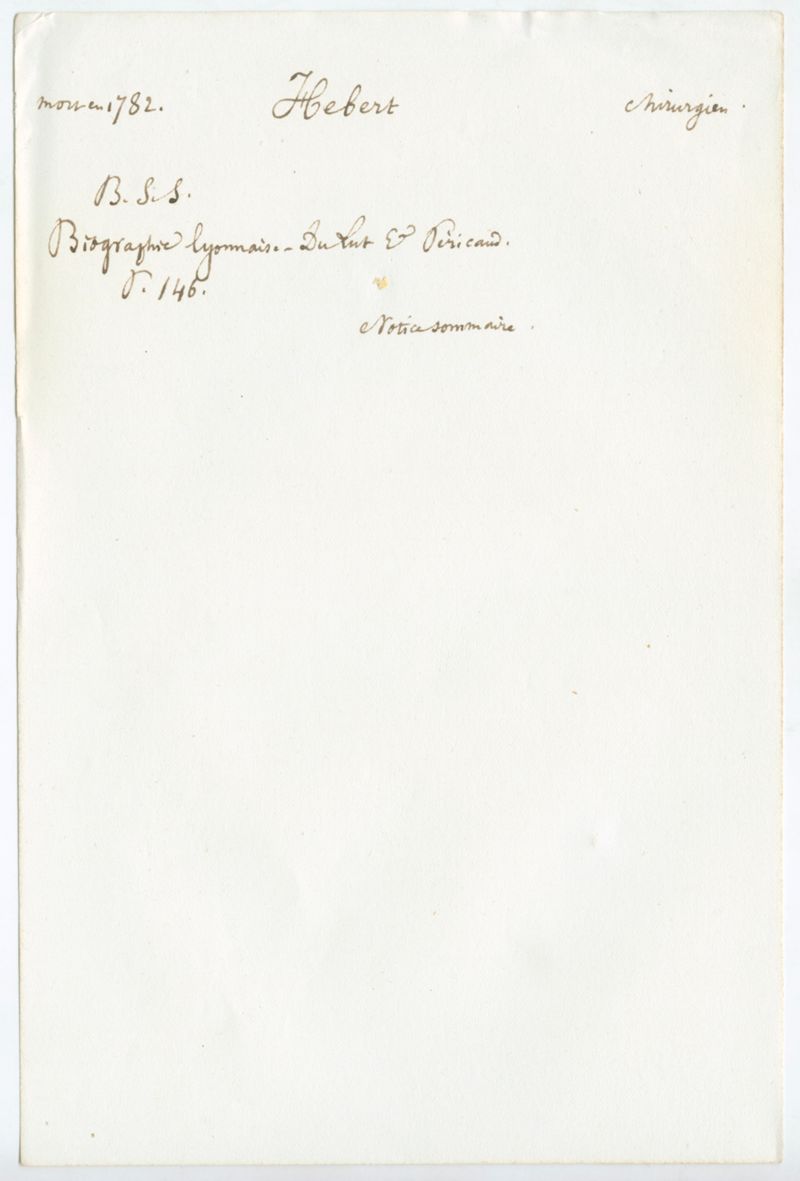 mort en 1782. Hebert chirurgien.
B. S. S.
Biographie lyonnaise - Du Lut & Péricaud.
P. 146.
Notice sommaire.